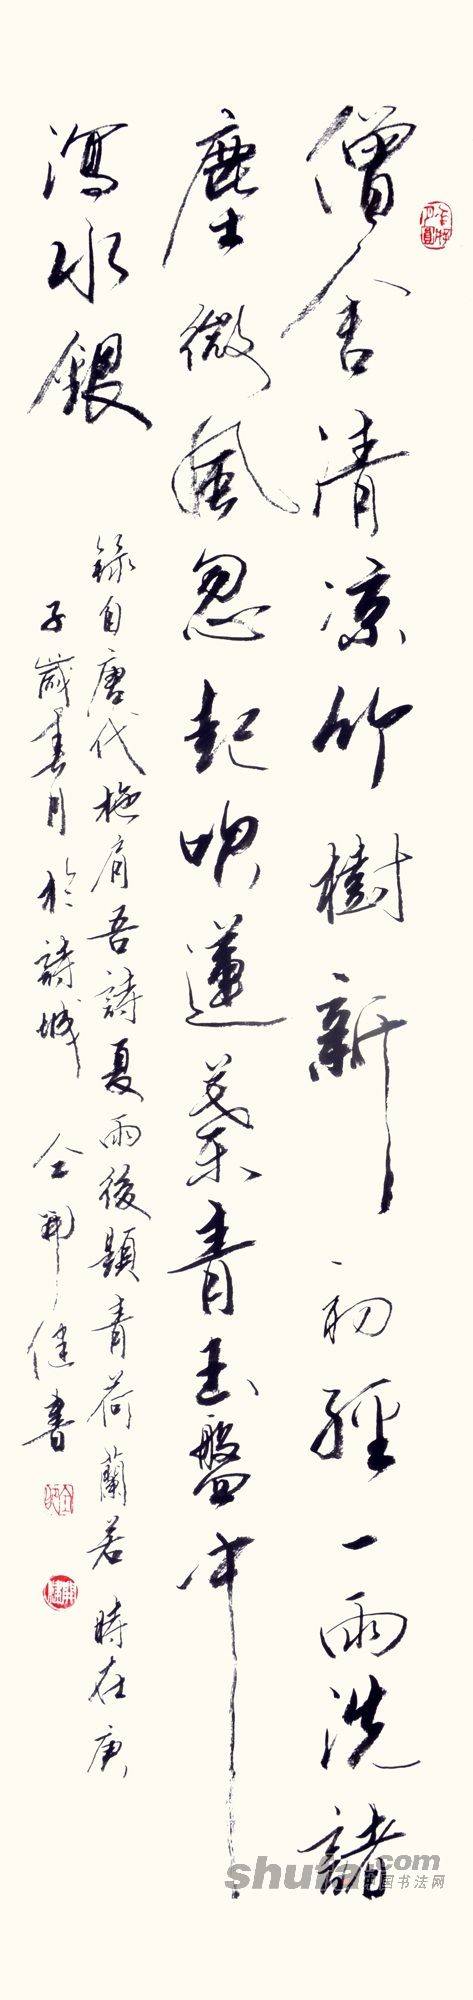 僧舍清凉竹樹新初經一雨洗諸
塵微風忽起吹蓮葉青玉盤中
瀉水銀
錄自唐代施肩吾詩夏雨後題青荷蘭若時在庚
子歲春月於詩城仝開健書
shufa.com
中国书法网